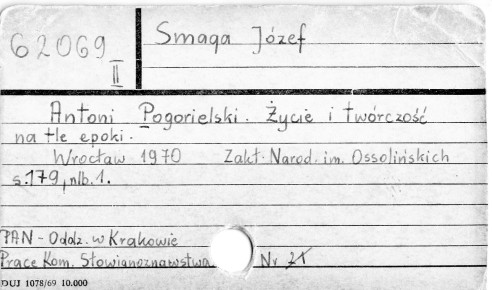 62069
II
Smaga Józef
Antoni Pogorielski. Życie i twórczość
na tle epoki.
Wrocław 1970 Zakł. Narod. im. Ossolińskich
s.179, nlb.1.
PAN - Oddz. w Krakowie
Prace Kom. Słowianoznawstwa Nr 21
DUJ 1078/69 10.000